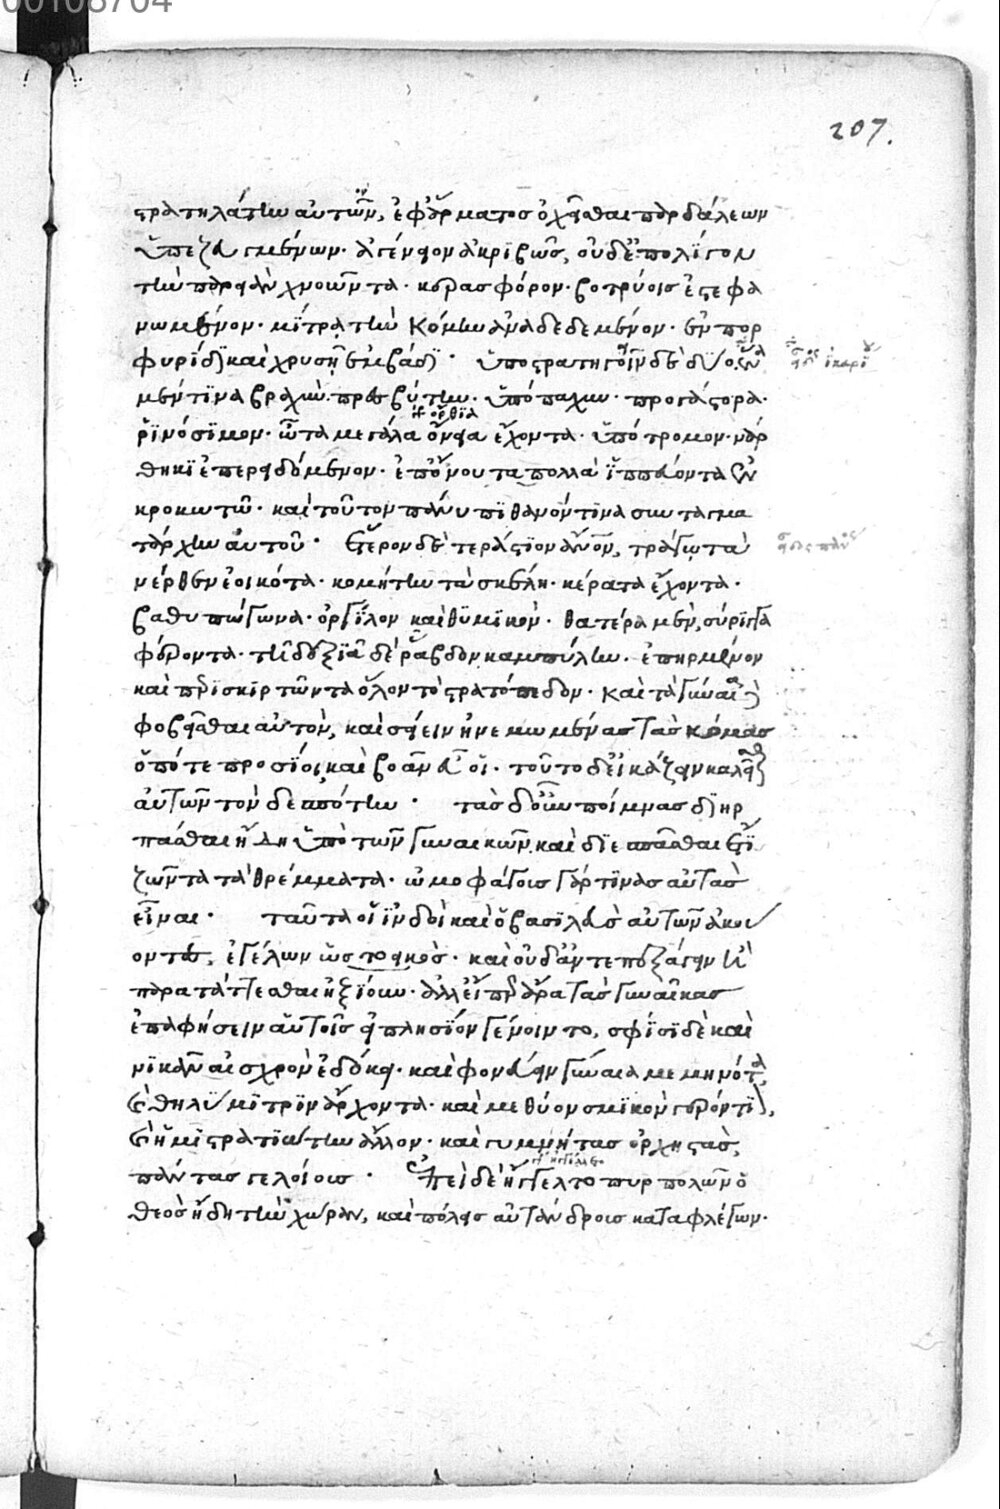 207.
στρατηλάτην αὐτῶν, ἐφ' ἅρματος ὀχεῖσθαι παρδάλεων
ὑπεζευγμένων· ἀγένειον ἀκριβῶς, οὐδ' ἐπ' ὀλίγον
τὴν παρειὰν χνοῶντα· κερασφόρον· βοτρύοις ἐστεφα
νωμένον· μίτρᾳ τὴν κόμην ἀναδεδεμένον· ἐν πορ
φυρίδι καὶ χρυσῇ ἐμβάδι· ὑποστρατηγεῖν δὲ δύο· ἕνα
μέν τινα βραχὺν πρεσβύτην· ὑπόπαχυν· προγάστορα·
ῥινόσιμον· ὦτα μεγάλα ὄρθια ἔχοντα· ὑπότρομον· νάρ
θηκι ἐπερειδόμενον· ἐπ' ὄνου τὰ πολλὰ ἱππεύοντα ἐν
κροκωτῷ· καὶ τοῦτον πάνυ πιθανόν τινα συνταγμα
τάρχην αὐτοῦ· ἕτερον δὲ τεράστιον ἄνον, τράγῳ τὰ
νέρθεν ἐοικότα· κομήτην τὰ σκέλη· κέρατα ἔχοντα·
βαθυπώγωνα· ὀργίλον καὶ θυμικὸν· θατέρᾳ μὲν, σύριγγα
φέροντα· τῇ δεξιᾷ δὲ ῥάβδον καμπύλην· ἐπηρμένον
καὶ περισκιρτῶντα ὅλον τὸ στρατόπεδον· καὶ τὰ γύναια δὲ
φοβεῖσθαι αὐτὸν, καὶ σείειν ἠνεμωμένας τὰς κόμας
ὁπότε προσίοι, καὶ βοᾶν εὐοῖ· τοῦτο δ' εἰκάζειν καλεῖσθαι
αὐτῶν τὸν δεσπότην· τὰς δ' οὖν ποίμνας διηρ
πάσθαι ἤδη ὑπὸ τῶν γυναικῶν, καὶ διεσπᾶσθαι ἔτι
ζῶντα τὰ θρέμματα· ὠμοφάγους γάρ τινας αὐτὰς
εἶναι· ταῦτα οἱ ἰνδοὶ καὶ ὁ βασιλεὺς αὐτῶν ἀκού
οντες, ἐγέλων ὡς τὸ εἰκὸς· καὶ οὐδ' ἀντεπεξάγειν ἢ
παρατάττεσθαι ἠξίουν· ἀλλ' εἴπερ ἄρα τὰς γυναῖκας
ἐπαφήσειν αὐτοῖς εἰ πλησίον γένοιντο, σφίσι δὲ καὶ
νικᾶν αἰσχρὸν ἐδόκει· καὶ φονεύειν γύναια μεμηνότα,
καὶ θηλυμίτριν ἄρχοντα· καὶ μεθύον σμικρὸν γερόντιον,
καὶ ἡμιστρατιώτην ἄλλον· καὶ γυμνήτας ὀρχηστὰς,
πάντας γελοίους· ἐπεὶ δὲ ἤγγελτο πυρπολῶν ὁ
θεὸς ἤδη τὴν χώραν, καὶ πόλεις αὐτάνδρους καταφλέγων·